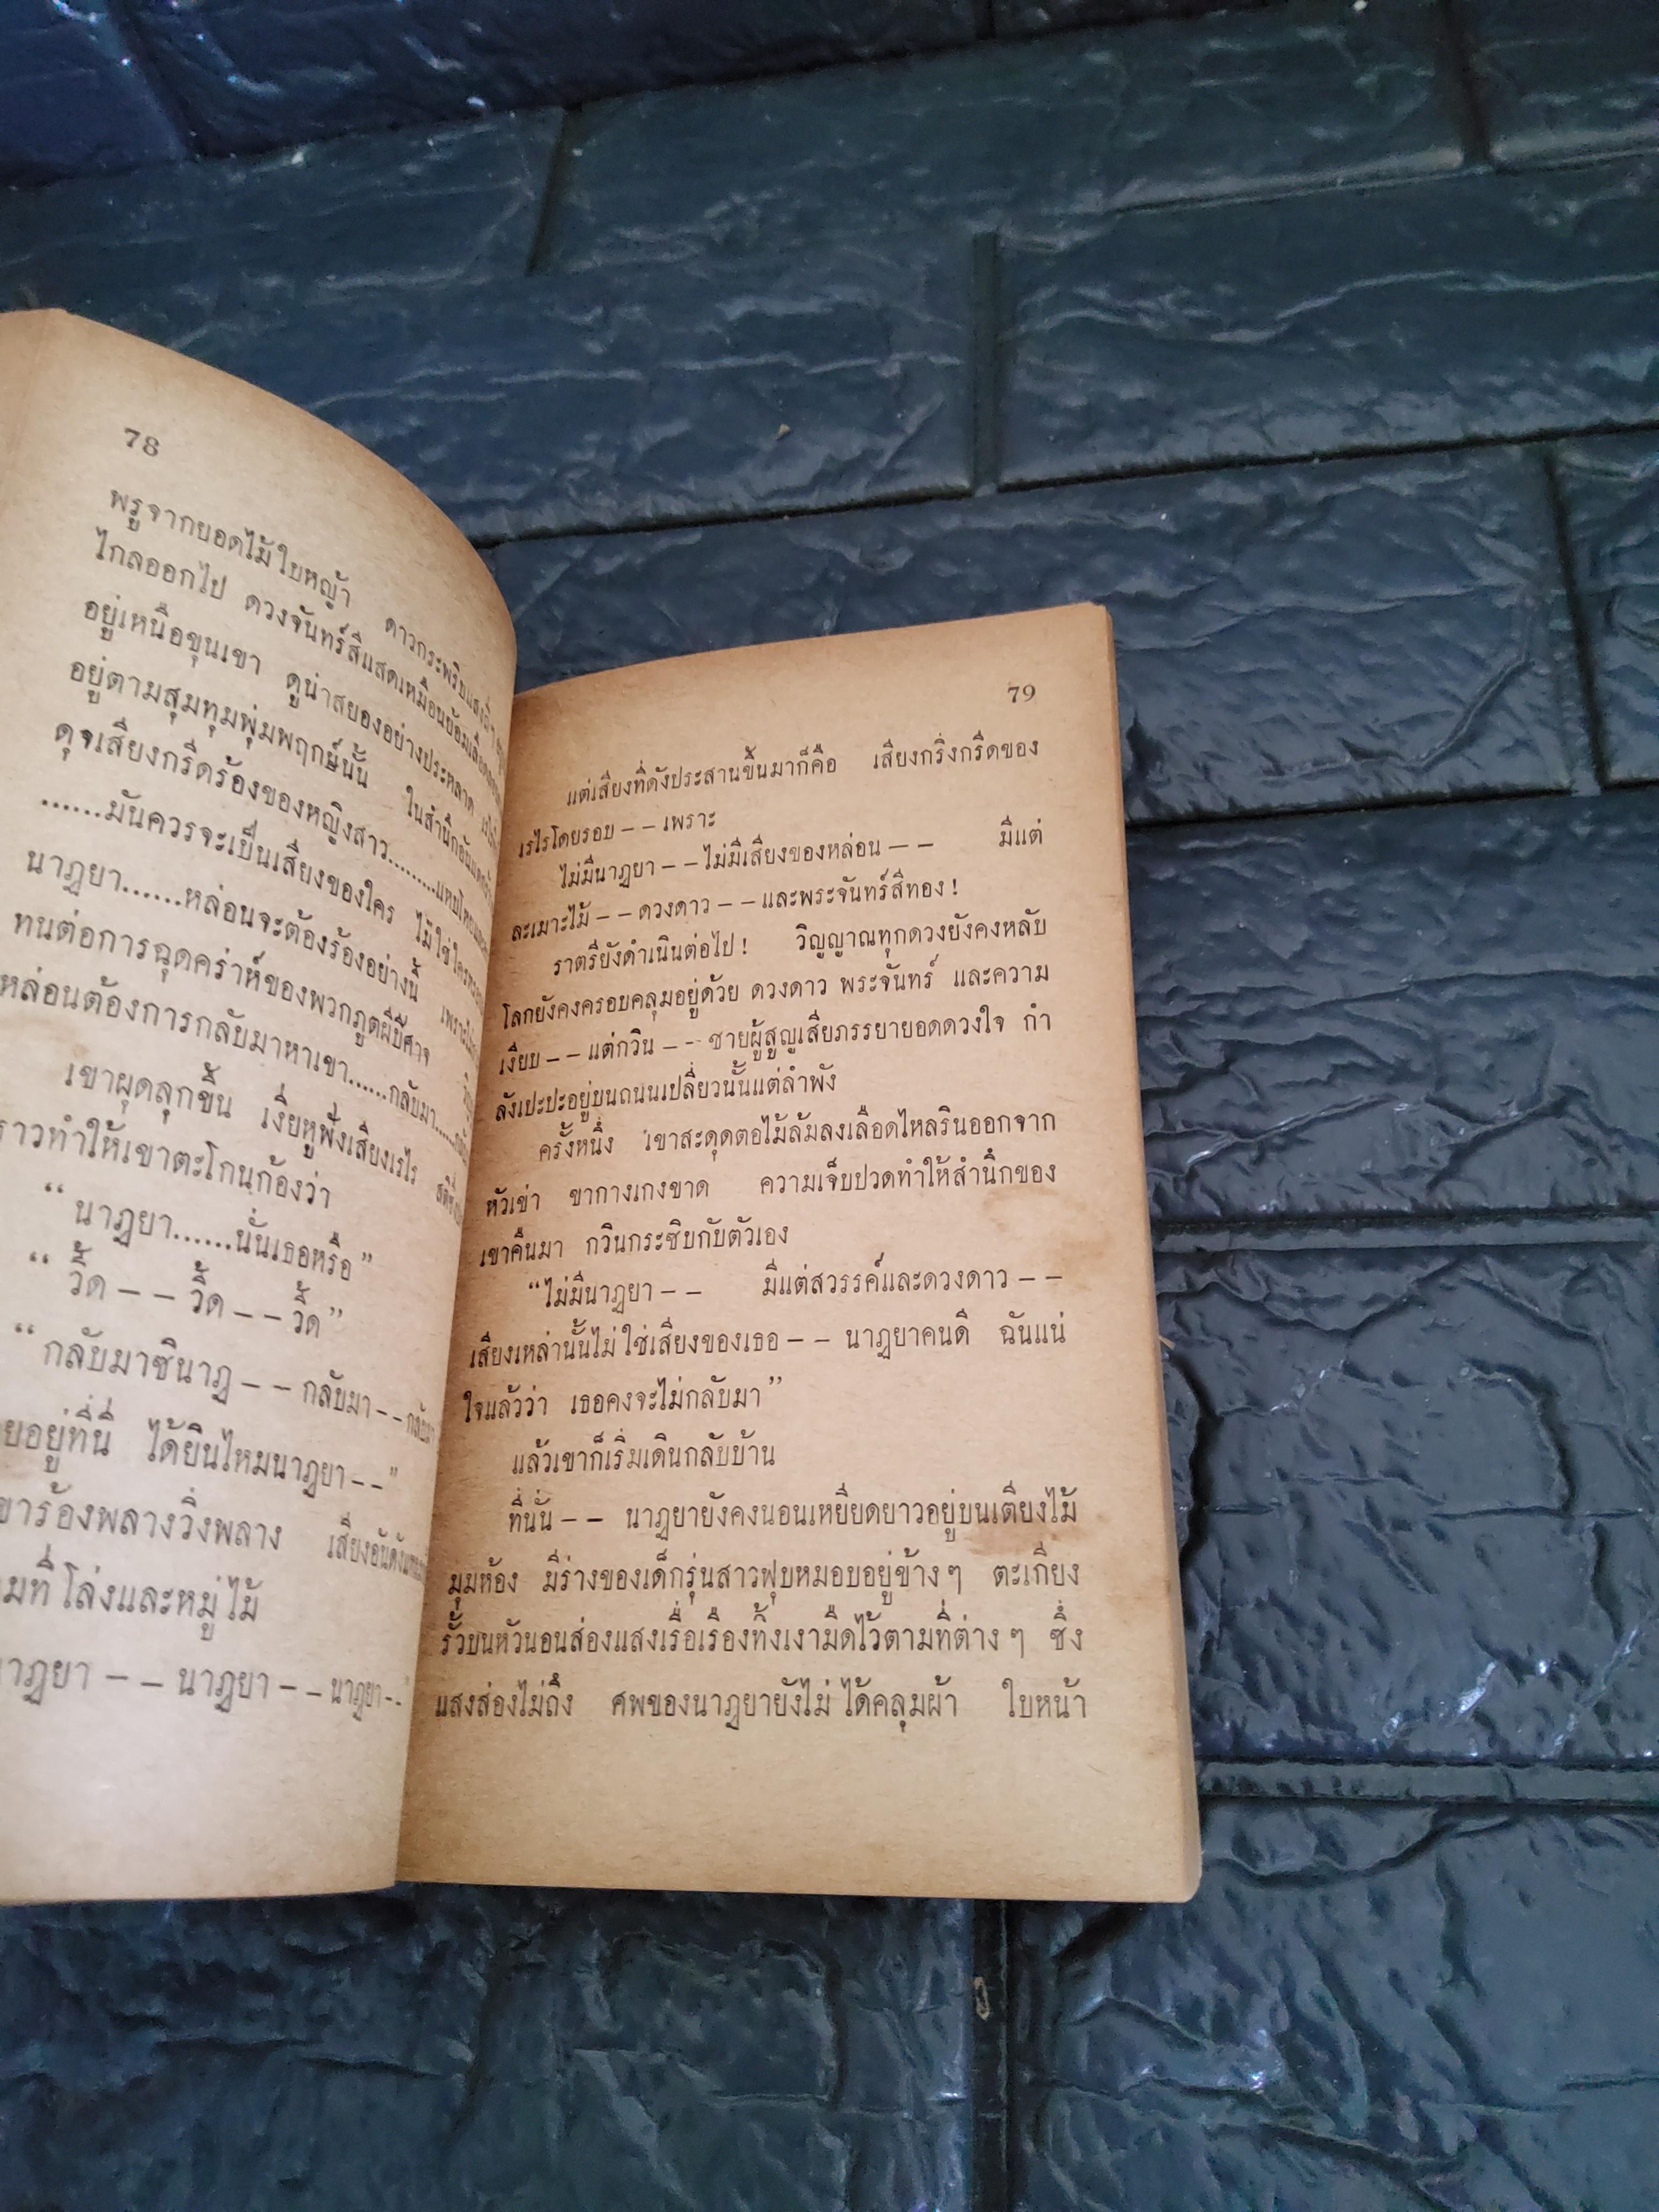 78
พรูจากยอดไม้ใบหญ้า ดาวกระพริบแสง
ไกลออกไป ดวงจันทร์สีแสดเหมือนย้อมเลือด
อยู่เหนือขุนเขา ดูน่าสยองอย่างประหลาด
อยู่ตามสุมทุมพุ่มพฤกษ์นั้น ในสำนึกอัน
ดุจเสียงกรีดร้องของหญิงสาว........แทบ
......มันควรจะเป็นเสียงของใคร ไม้ใช่ใคร
นาฏยา......หล่อนจะต้องร้องอย่างนี้ เพราะ
ทนต่อการฉุดคร่าห์ของพวกภูตผีปีศาจ
หล่อนต้องการกลับมาหาเขา......กลับมา......
เขาผุดลุกขึ้น เงี่ยหูฟังเสียงเรไร
ราวทำให้เขาตะโกนก้องว่า
“นาฏยา......นั่นเธอหรือ”
“วี้ด – – วี้ด – – วี้ด”
“กลับมาซินาฏ – – กลับมา – – กลับมา
ยอยู่ที่นี่ ได้ยินไหมนาฏยา – –”
ขาร้องพลางวิ่งพลาง
มที่โล่งและหมู่ไม้
าฏยา – – นาฏยา – – นาฏยา – –”
79
แต่เสียงที่ดังประสานขึ้นมาก็คือ เสียงกริ่งกรีดของ
เรไรโดยรอบ – – เพราะ
ไม่มีนาฏยา – – ไม่มีเสียงของหล่อน – – มีแต่
ละเมาะไม้ – – ดวงดาว – – และพระจันทร์สีทอง !
ราตรียังดำเนินต่อไป ! วิญญาณทุกดวงยังคงหลับ
โลกยังคงครอบคลุมอยู่ด้วย ดวงดาว พระจันทร์ และความ
เงียบ – – แต่กวิน – – ชายผู้สูญเสียภรรยายอดดวงใจ กำ
ลังเปะปะอยู่บนถนนเปลี่ยวนั้นแต่ลำพัง
ครั้งหนึ่ง เขาสะดุดตอไม้ล้มลงเลือดไหลรินออกจาก
หัวเข่า ขากางเกงขาด ความเจ็บปวดทำให้สำนึกของ
เขาคืนมา กวินกระซิบกับตัวเอง
“ไม่มีนาฏยา – – มีแต่สวรรค์และดวงดาว – –
เสียงเหล่านั้นไม่ใช่เสียงของเธอ – – นาฏยาคนดี ฉันแน่
ใจแล้วว่า เธอคงจะไม่กลับมา”
แล้วเขาก็เริ่มเดินกลับบ้าน
ที่นั่น – – นาฏยายังคงนอนเหยียดยาวอยู่บนเตียงไม้
มุมห้อง มีร่างของเด็กรุ่นสาวฟุบหมอบอยู่ข้าง ๆ ตะเกียง
รั้วบนหัวนอนส่องแสงเรื่อเรืองทิ้งเงามืดไว้ตามที่ต่าง ๆ ซึ่ง
แสงส่องไม่ถึง ศพของนาฏยายังไม่ได้คลุมผ้า ใบหน้า